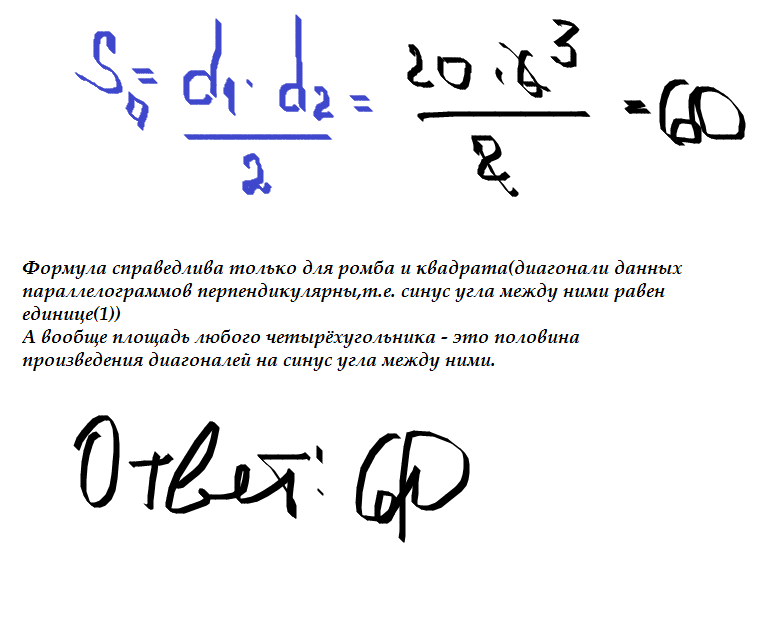 S◊ = d1 · d2 / 2 = 20 · 6 3 / 2 = 60
Формула справедлива только для ромба и квадрата(диагонали данных
параллелограммов перпендикулярны,т.е. синус угла между ними равен
единице(1))
А вообще площадь любого четырёхугольника - это половина
произведения диагоналей на синус угла между ними.
Ответ: 60